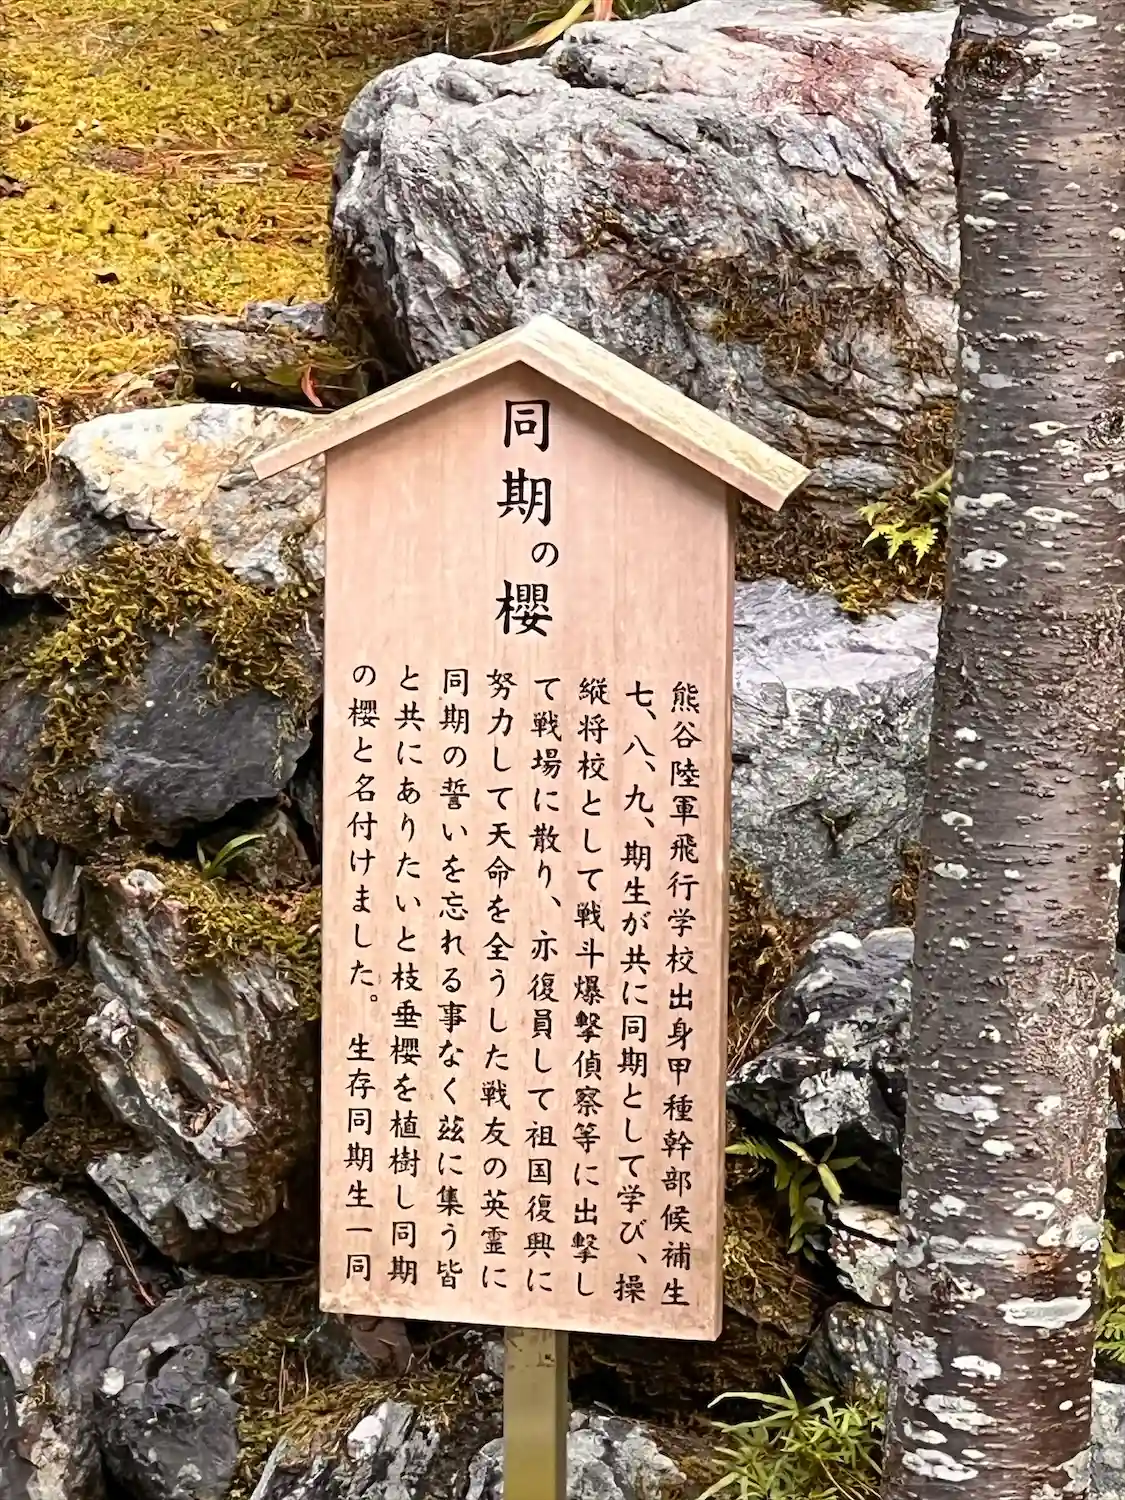 同期の櫻
熊谷陸軍飛行学校出身甲種幹部候補生
七、八、九、期生が共に同期として学び、操
縦将校として戦斗爆撃偵察等に出撃し
て戦場に散り、亦復員して祖国復興に
努力して天命を全うした戦友の英霊に
同期の誓いを忘れる事なく玆に集う皆
と共にありたいと枝垂櫻を植樹し同期
の櫻と名付けました。 生存同期生一同